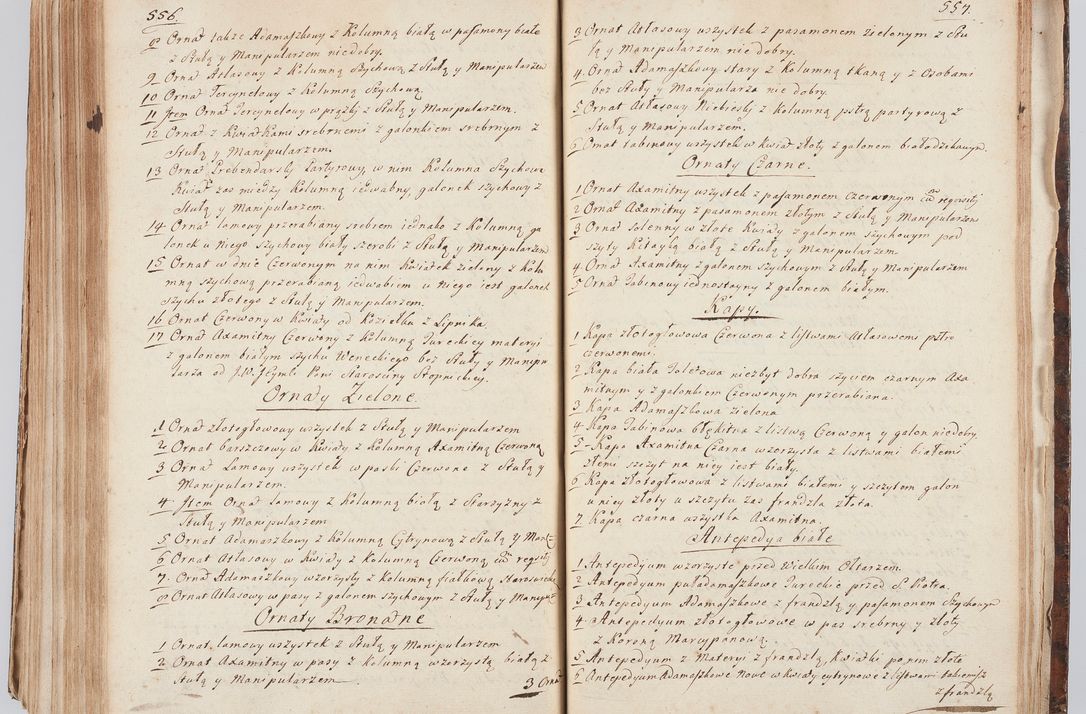 556.
8 Ornat także Adamaszkowy z Kolumną białą w pasamony białe
z Stułą y Manipularzem niedobry.
9. Ornat Atłasowy z Kolumną Szychową z Stułą y Manipularzem
10 Ornat Tercynelowy z Kolumną Szychową.
11 Item Ornat Tercynelowy w prążki z Stułą y Manipularzem.
12 Ornat z Kwiatkami srebrnemi z galonkiem srebrnym z
Stułą y Manipularzem.
13 Ornat Prebendarski Partyrowy, w nim Kolumna Szychowa
Kwiat zas między Kolumną iedwabny, galonek szychowy z
Stułą y Manipularzem.
14 Ornat lamowy przerabiany srebrem iednako z Kolumną ga
lonek u niego szychowy biały szeroki z Stułą y Manipularzem
15 Ornat w dnie Czerwonym na nim Kwiatek zielony z Kolu
mną szychową przerabianą iedwabiem u niego iest galonek
Szychu złotego z Stułą y Manipularzem.
16 Ornat Czerwony w Kwiaty od Koziełka z Lipnika.
17 Ornat Axamitny Czerwony z Kolumną Tureckiey materyi
z galonem białym Szychu Weneckiego bez Stuły y Manipu
larza od J.W. Jeymci Pani Starosciny Stopnickiey.
Ornaty Zielone.
1 Ornat złotogłowowy wszystek z Stułą y Manipularzem
2 Ornat barszczowy w Kwiaty z Kolumną Axamitną Czerwoną
3 Ornat Lamowy wszystek w paski Czerwone z Stułą y
Manipularzem.
4 Item Ornat lamowy z Kolumną białą z Starsyzny z
Stułą y Manipularzem
5 Ornat Adamaszkowy z Kolumną Cytrynową z Stułą y Mani=
6 Ornat Atłasowy w Kwiaty z Kolumną Czerwoną cū reqsitij
7. Ornat Adamaszkowy wzorzysty z Kolumną fiałkową Staroswiecki
8 Ornat Atłasowy w pasy z galonem szychowym z Stułą y Manipu=
Ornaty Bronatne
1 Ornat lamowy wszystek z Stułą y Manipularzem
2 Ornat Axamitny w pasy z Kolumną wzorzystą białą z
Stułą y Manipularzem
3 Ornat
557.
3 Ornat Atłasowy wszystek z pasamonem zielonym z Stu
łą y Manipularzem nie dobry.
4. Ornat Adamaszkowy stary z Kolumną tkaną y z Osobami
bez Stuły y Manipularza nie dobry.
5 Ornat Atłasowy Niebieski z Kolumną pstłą partyrową z
Stułą y Manipularzem.
6 Ornat tabinowy wszystek w kwiat złoty z galonem białodzekowym.
Ornaty Czarne.
1 Ornat Axamitny wszystek z pasamonem Czerwonym cū reqwisitij
2 Ornat Axamitny z pasamonem złotym z Stułą y Manipularzem
3 Ornat Solenny w złote Kwiaty z galonem szychowym pod
szyty Kitayką białą z Stułą y Manipularzem.
4. Ornat Axamitny z galonem szychowym z Stułą y Manipularzem
5 Ornat Tabinowy iednostayny z galonem białym.
Kapy.
1 Kapa złotogłowowa Czerwona z listwami Atłasowemi pstro
czerwonemi.
2 Kapa biała Toletowa niezbyt dobra szyciem czarnym Axa
mitnym y z galonkiem Czerwonym przerabiana.
3 Kapa Adamaszkowa zielona
4 Kapa Tabinowa błękitna z listwą Czerwoną y galon niedobry.
5 Kapa Axamitna Czarna wzorzysta z listwami białemi
złemi szczyt na niey iest biały.
6 Kapa złotogłowowa z listwami białemi y szczytem galon
u niey złoty u szczytu zas frandzla złota.
7 Kapa czarna wszystka Axamitna.
Antepedya białe
1 Antepedyum wzorzyste przed Wielkim Ołtarzem.
2 Antepedyum puładamaszkowe Tureckie przed S. Piotra.
3 Antepedyum Adamaszkowe z frandzlą y pasamonem Szychowym
4 Antepedyum złotogłowowe w pas srebrny y złoty
z Koroną Marcypanową.
5 Antepedyum z Materyi z frandzlą, Kwiatki po nim złote
6 Antepedyum Adamaszkowe Nowe w Kwiaty cytrynowe z listwami takiemisz
z frandzlą